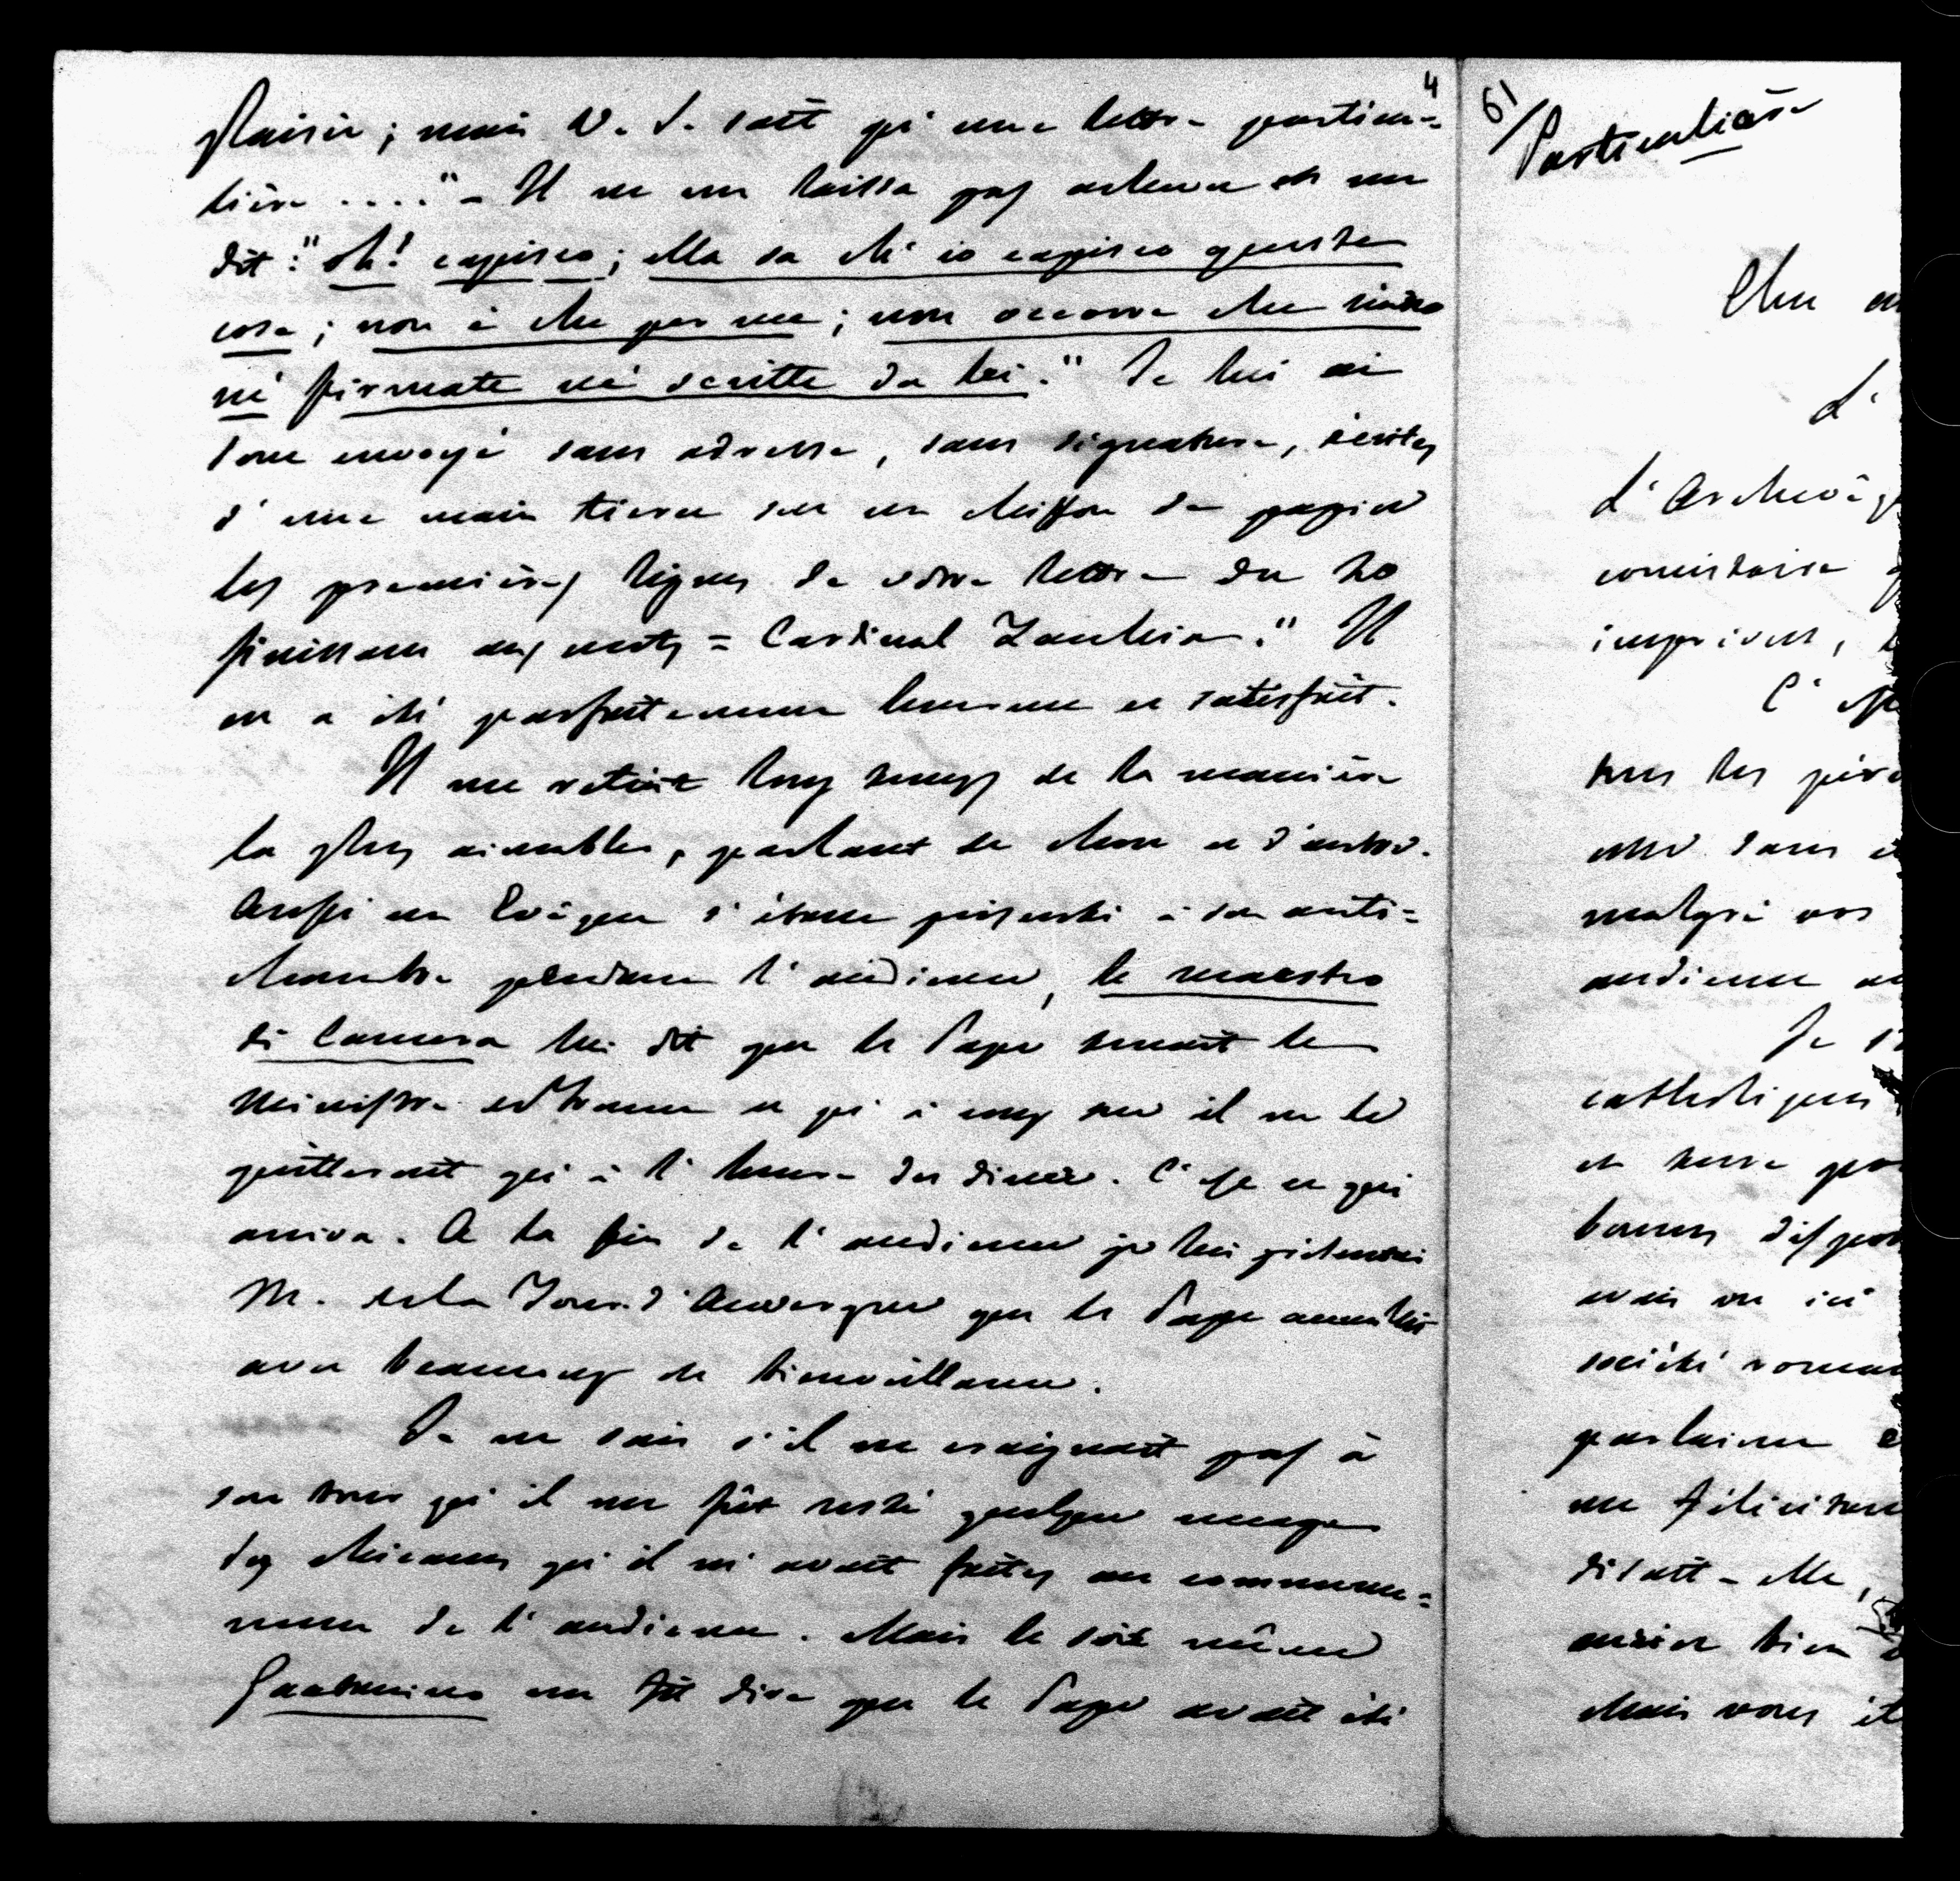 4
plaisir ; mais V. S. sait qu'une lettre particu=
lière ...." – Il ne me laissa pas achever et me
dit : "oh! capisco ; Ella sa ch'io capisco queste
cose ; non è che per me ; non occorre che siano
nè firmate nè scritte da lei." Je lui ai
donc envoyé sans adresse, sans signature, écrites
d'une main tierce sur un chiffon de papier
les premières lignes de votre lettre du 20
finissant aux mots = Cardinal Zurla." Il
en a été parfaitement heureux et satisfait.
Il me retint long temps de la manière
la plus aimable, parlant de chose et d'autre.
Aussi un Evêque s'étant présenté à son anti=
chambre pendant l'audience, le maestro
di Camera lui dit que le Pape tenait le
Ministre et qu'à coup sur il ne le
quitterait qu'à l'heure du diner. C'est ce qui
arriva. A la fin de l'audience je lui présentai
M. de la Tour d'Auvergne que le Pape accueillit
avec beaucoup de bienveillance.
Je ne sais s'il ne craignait pas à
son tour qu'il me fût resté quelque nuage
des chicanes qu'il m'avait faites au commence=
ment de l'audience. Mais le soir même
Gaetanino me fit dire que le Pape avait été
61
Particulière
Cher
L'
l'Archevêq
consistoire
imprimés,
C'est
tous les
malgré vos
audience
Je
catholiques
et notre
bonnes dispo
avais vu ici
société romai
parlaient
me félicitant
disait-elle,
bien
Mais vous